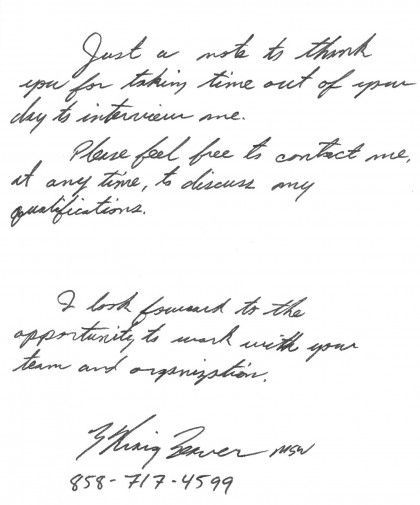 Just a note to thank
you for taking time out of your
day to interview me.
Please feel free to contact me,
at any time, to discuss my
qualifications.
I look forward to the
opportunity to work with your
team and organization.
MSW
858-717-4599